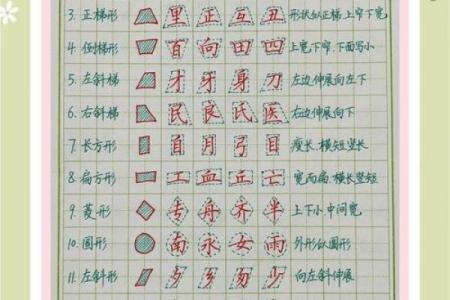 3. 正梯形 里 正 互 丑 形状似正梯上窄下宽
4. 倒梯形 百 向 田 四 上宽下窄.下面写小
5. 左斜梯 才 牙 身 刀 左边伸展向左下
6. 右斜梯 民 良 氏 医 右边伸展向下
7. 长方形 自 月 弓 目 瘦长.横短竖长
8. 扁方形 工 血 丘 亡 宽而扁.横长竖短
9. 菱形 专 舟 齐 半 上下小中间宽
10. 圆形 南 永 女 雨 外形似圆形
11. 左斜形 夕 乡 勿 少 向左斜伸展